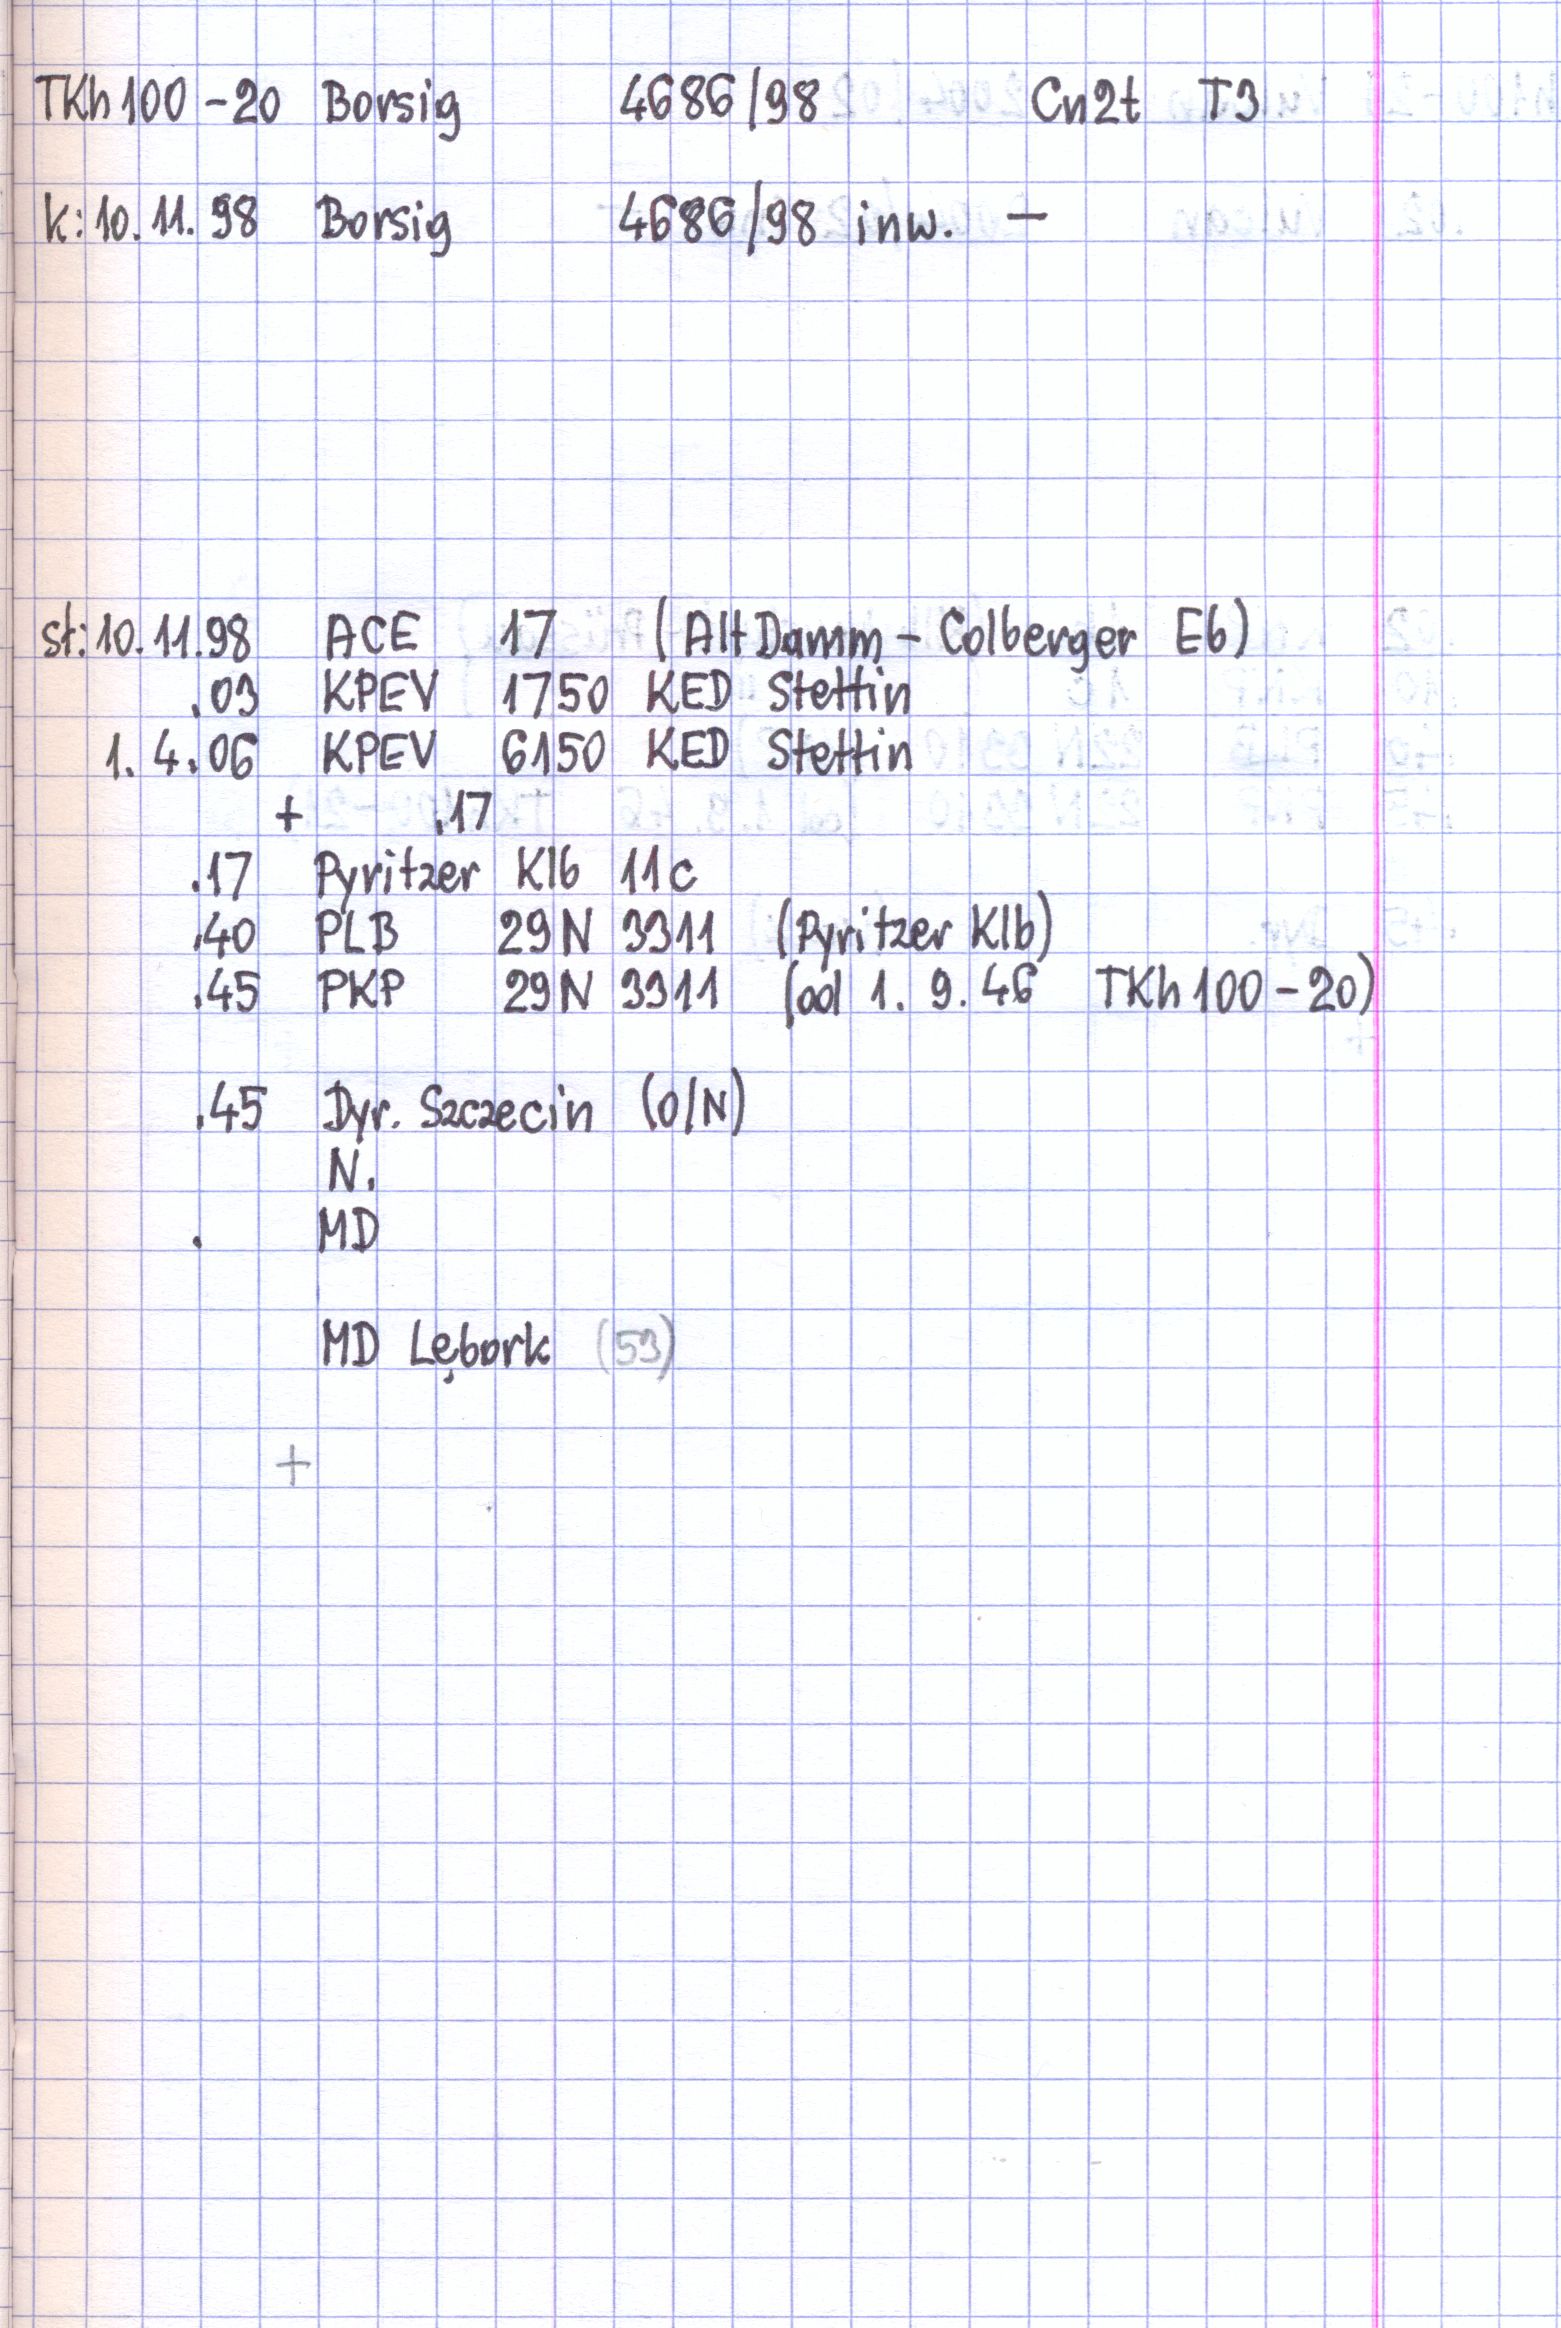 TKh100-20 Borsig 4686/98 Cn2t T3
k: 10.11.98 Borsig 4686/98 inw. —
st: 10.11.98 ACE 17 (Alt Damm - Colberger Eb)
.03 KPEV 1750 KED Stettin
1. 4. 06 KPEV 6150 KED Stettin
+ .17
.17 Pyritzer Klb 11c
.40 PLB 29N 3311 (Pyritzer Klb)
.45 PKP 29N 3311 (od 1. 9. 46 TKh100-20)
.45 Dyr. Szczecin (O/N)
N.
. MD
MD Lębork (53)
+